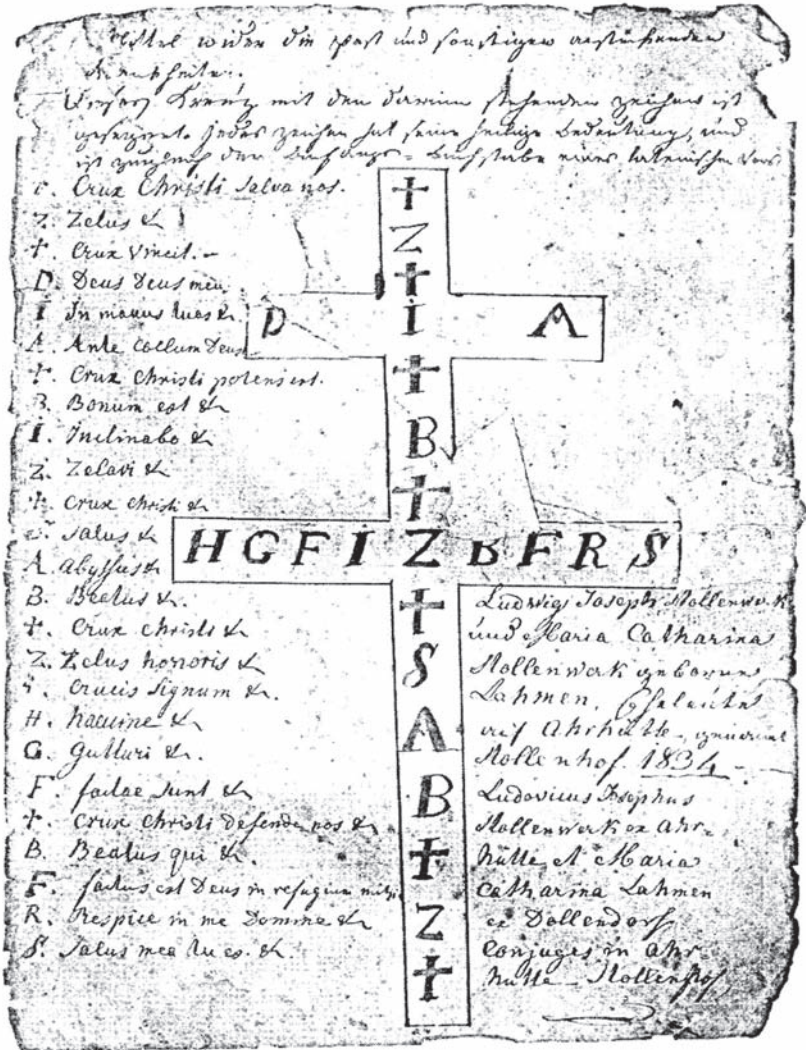 Mittel wider die Pest und sonstigen ansteckenden
Krankheiten.
Dieses Kreutz mit den darinn stehenden zeichen ist
gesegnet. Jedes zeichen hat seine heilige bedeutung, und
ist zugleich der Anfangs-buchstabe eines lateinischen Vers
✝. Crux Christi salva nos.
Z. Zelus &
✝. Crux vincit. —
D. Deus Deus meus
I. In manus tuas &
A. Ante coelum Deus
✝. Crux Christi potens est.
B. Bonum est &
I. Inclinabo &
Z. Zelavi &
✝. Crux christi &
S. Salus &
A. abyssus &
B. Beatus &.
✝. Crux christi &
Z. Zelus honoris &
✝. Crucis signum &.
H. haccine &
G. Gutturi &.
F. factae sunt &
✝. Crux christi defende nos &
B. Beatus qui &.
F. factus est Deus in refugium mihi.
R. Respice in me Domine &
S. Salus mea tu es. &.
✝
Z
✝
D I A
✝
B
✝
H G F I Z B F R S
✝
S
A
B
✝
Z
✝
Ludwig Joseph Mollenwerk
und Maria Catharina
Mollenwerk geborne
Lahmen, Eheleute
auf Ahrhütte, genannt
Mollenhof. 1834 —
Ludovicus Josephus
Mollenwerk ex Ahr-
hütte et Maria
Catharina Lahmen
ex Dollendorf
Conjuges in Ahr
hütte – Mollenhof